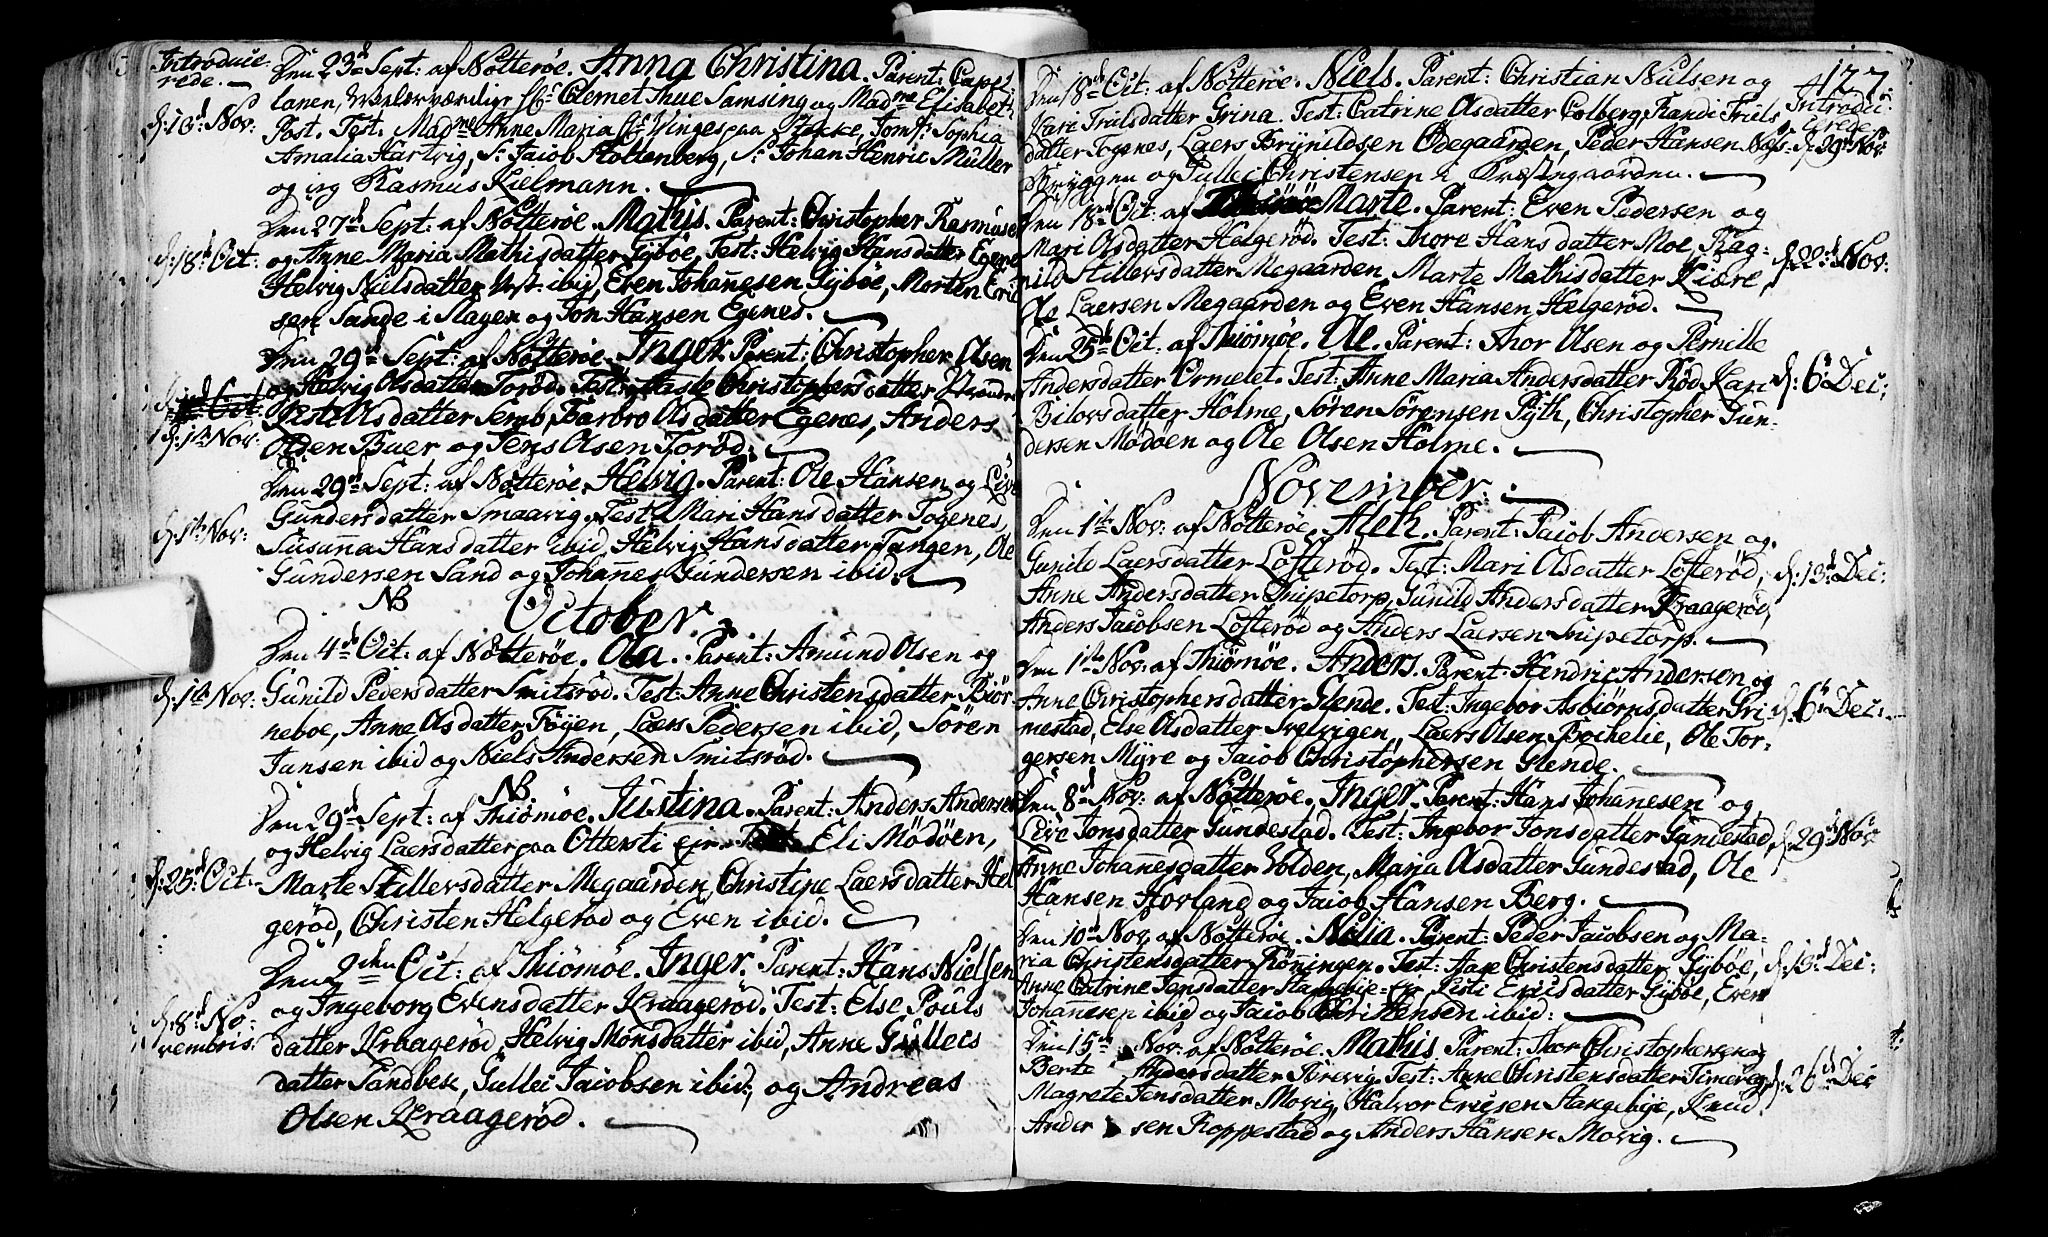 Introduce-
rede.
Den 23d Sept: af Nötteröe. Anna Christina. Parent: Capel-
lanen, Velærværdige Hr: Clemet Thue Samsing og Madme Elisabeth
d: 13d Nov:
Post. Test. Madme Anne Maria Sl: Winges paa Stokke, Jomf: Sophia
Amalia Hartvig, Sr: Jacob Stoltenberg, Sr: Johan Henric Müller
og jeg Rasmus Kielmann.
Den 27d Sept: af Nötteröe. Mathis. Parent: Christopher Rasmusen
d: 18d Oct:
og Anne Maria Mathisdatter Gyböe, Test: Helvig Hansdatter Egene
Helvig Nielsdatter ibid, Even Johanesen Gyböe, Morten Eric
sen Sande i Slagen og Jon Hansen Egenes.
Den 29d Sept: af Nötteröe. Inger. Parent: Christopher Olsen
og Helvig Olsdatter Toröd. Test: Christophersdatter
Oct:
d: 1ste Nov:
Kisti Olsdatter Semb, Barbro Olsdatter Egenes, Anders
Olsen Buer og Jens Olsen Toröd.
Den 29d Sept: af Nötteröe. Helvig. Parent: Ole Hansen og Live
Gundersdatter Smaavig. Test: Mari Hansdatter Togenes,
d: 1ste Nov:
Susanna Hansdatter ibid, Helvig Hansdatter Tangen, Ole
Gundersen Sand og Johannes Gundersen ibid.
NB
October.
Den 4d Oct: af Nötteröe. Ola. Parent: Amund Olsen og
d: 1ste Nov:
Gunild Pedersdatter Smitsröd. Test: Anne Christensdatter Biör-
neboe, Anne Olsdatter Föyen, Laers Pedersen ibid, Sören
Jansen ibid og Niels Andersen Smitsröd.
NB
Den 29d Sept: af Thiömöe. Justina. Parent: Anders Andersen
og Helvig Laersdatter paa Ottersti ejr. Test: Eli Mödöen,
d: 25d Oct.
Marte Hillersdatter Megaarden, Christine Laersdatter Hel
geröd, Christen Helgeröd og Even ibid.
Den 2den Oct: af Thiömöe. Inger. Parent: Hans Nielsen
og Ingeborg Evensdatter Kraageröd. Test: Else Pouls
d: 8d No-
vembris:
datter Kraageröd, Helvig Monsdatter ibid, Anne Gullecs
datter Sandbek, Gullec Jacobsen ibid, og Andreas
Olsen Kraageröd.
127
Introdu-
cerede
Den 18d Oct: af Nötteröe. Niels. Parent: Christian Nielsen og
Kari Trulsdatter Grina. Test: Catrine Olsdatter Colberg, Randi Truls
datter Togenes, Laers Brynildsen Ödegaarden, Peder Hansen Næs-
d: 29d Nov:
Bryggen og Gullic Christensen i Præstegaarden.
Den 18d Oct: af Marte. Parent: Even Pedersen og
Mari Olsdatter Helgeröd. Test: Thore Hansdatter Moe, Rag-
d: 22d Nov:
nild Hillersdatter Megaarden, Marte Mathisdatter Kiære,
Ole Laersen Megaarden og Even Hansen Helgeröd.
Den 25d Oct: af Thiömöe. Ole. Parent: Thor Olsen og Pernille
Andersdatter Ormelet. Test: Anne Maria Andersdatter Röd, Kari
d: 6d Dec:
Bilovsdatter Holme, Sören Sörensen Pyth, Christopher Gun-
dersen Mödöen og Ole Olsen Holme.
November.
Den 1ste Nov: af Nötteröe. Aleth. Parent: Jacob Andersen og
Gunild Laersdatter Lofteröd. Test: Mari Olsdatter Lofteröd,
d: 13d Dec:
Anne Andersdatter Snipetorp, Gunild Andersdatter Kraageröd,
Anders Jacobsen Lofteröd og Anders Laersen Snipetorp.
Den 1ste Nov. af Thiömöe. Anders. Parent: Hendric Andersen og
Anne Christophersdatter Glende. Test: Ingebor Asbiörnsdatter Gri-
d: 6d Dec:
mestad, Else Olsdatter Svelvigen, Laers Olsen Böchelie, Ole Tor-
gersen Myre og Jacob Christophersen Glende.
Den 8d Nov: af Nötteröe. Inger. Parent: Hans Johanesen og
Live Jonsdatter Gundestad. Test: Ingebor Jonsdatter Gundestad,
d: 29d Nov
Anne Johanesdatter Volden, Maria Olsdatter Gundestad, Ole
Hansen Hovland og Jacob Hansen Berg.
Den 10d Nov. af Nötteröe. Nilia. Parent: Peder Jacobsen og Ma-
ria Christensdatter Röningen. Test: Aase Christensdatter Gyböe,
d: 13d Dec:
Anne Catrine Jensdatter, Kisti Ericsdatter Gyböe, Even
Johannesen ibid og Jacob Christensen ibid.
Den 15d Nov: af Nötteröe. Mathis. Parent: Thor Christophersen og
Berte Andersdatter Brevig. Test: Anne Christensdatter
d: 26d Dec
Magrete Jensdatter Movig, Halvor Ericsen Haugebye, Knud
Ander sen Roppestad og Anders Hansen Movig.